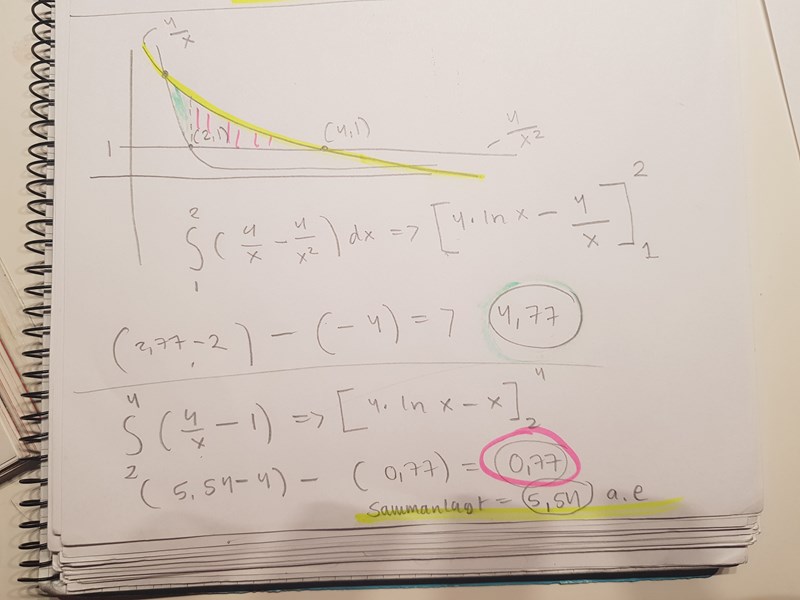 4/x
(2,1) (4,1) 4/x²
1
∫₁² (4/x − 4/x²) dx => [4·ln x − 4/x]₁²
(2,77-2) − (−4) => 4,77
∫₂⁴ (4/x − 1) => [4·ln x − x]₂⁴
(5,54-4) − (0,77) = 0,77
Sammanlagt = 5,54 a.e